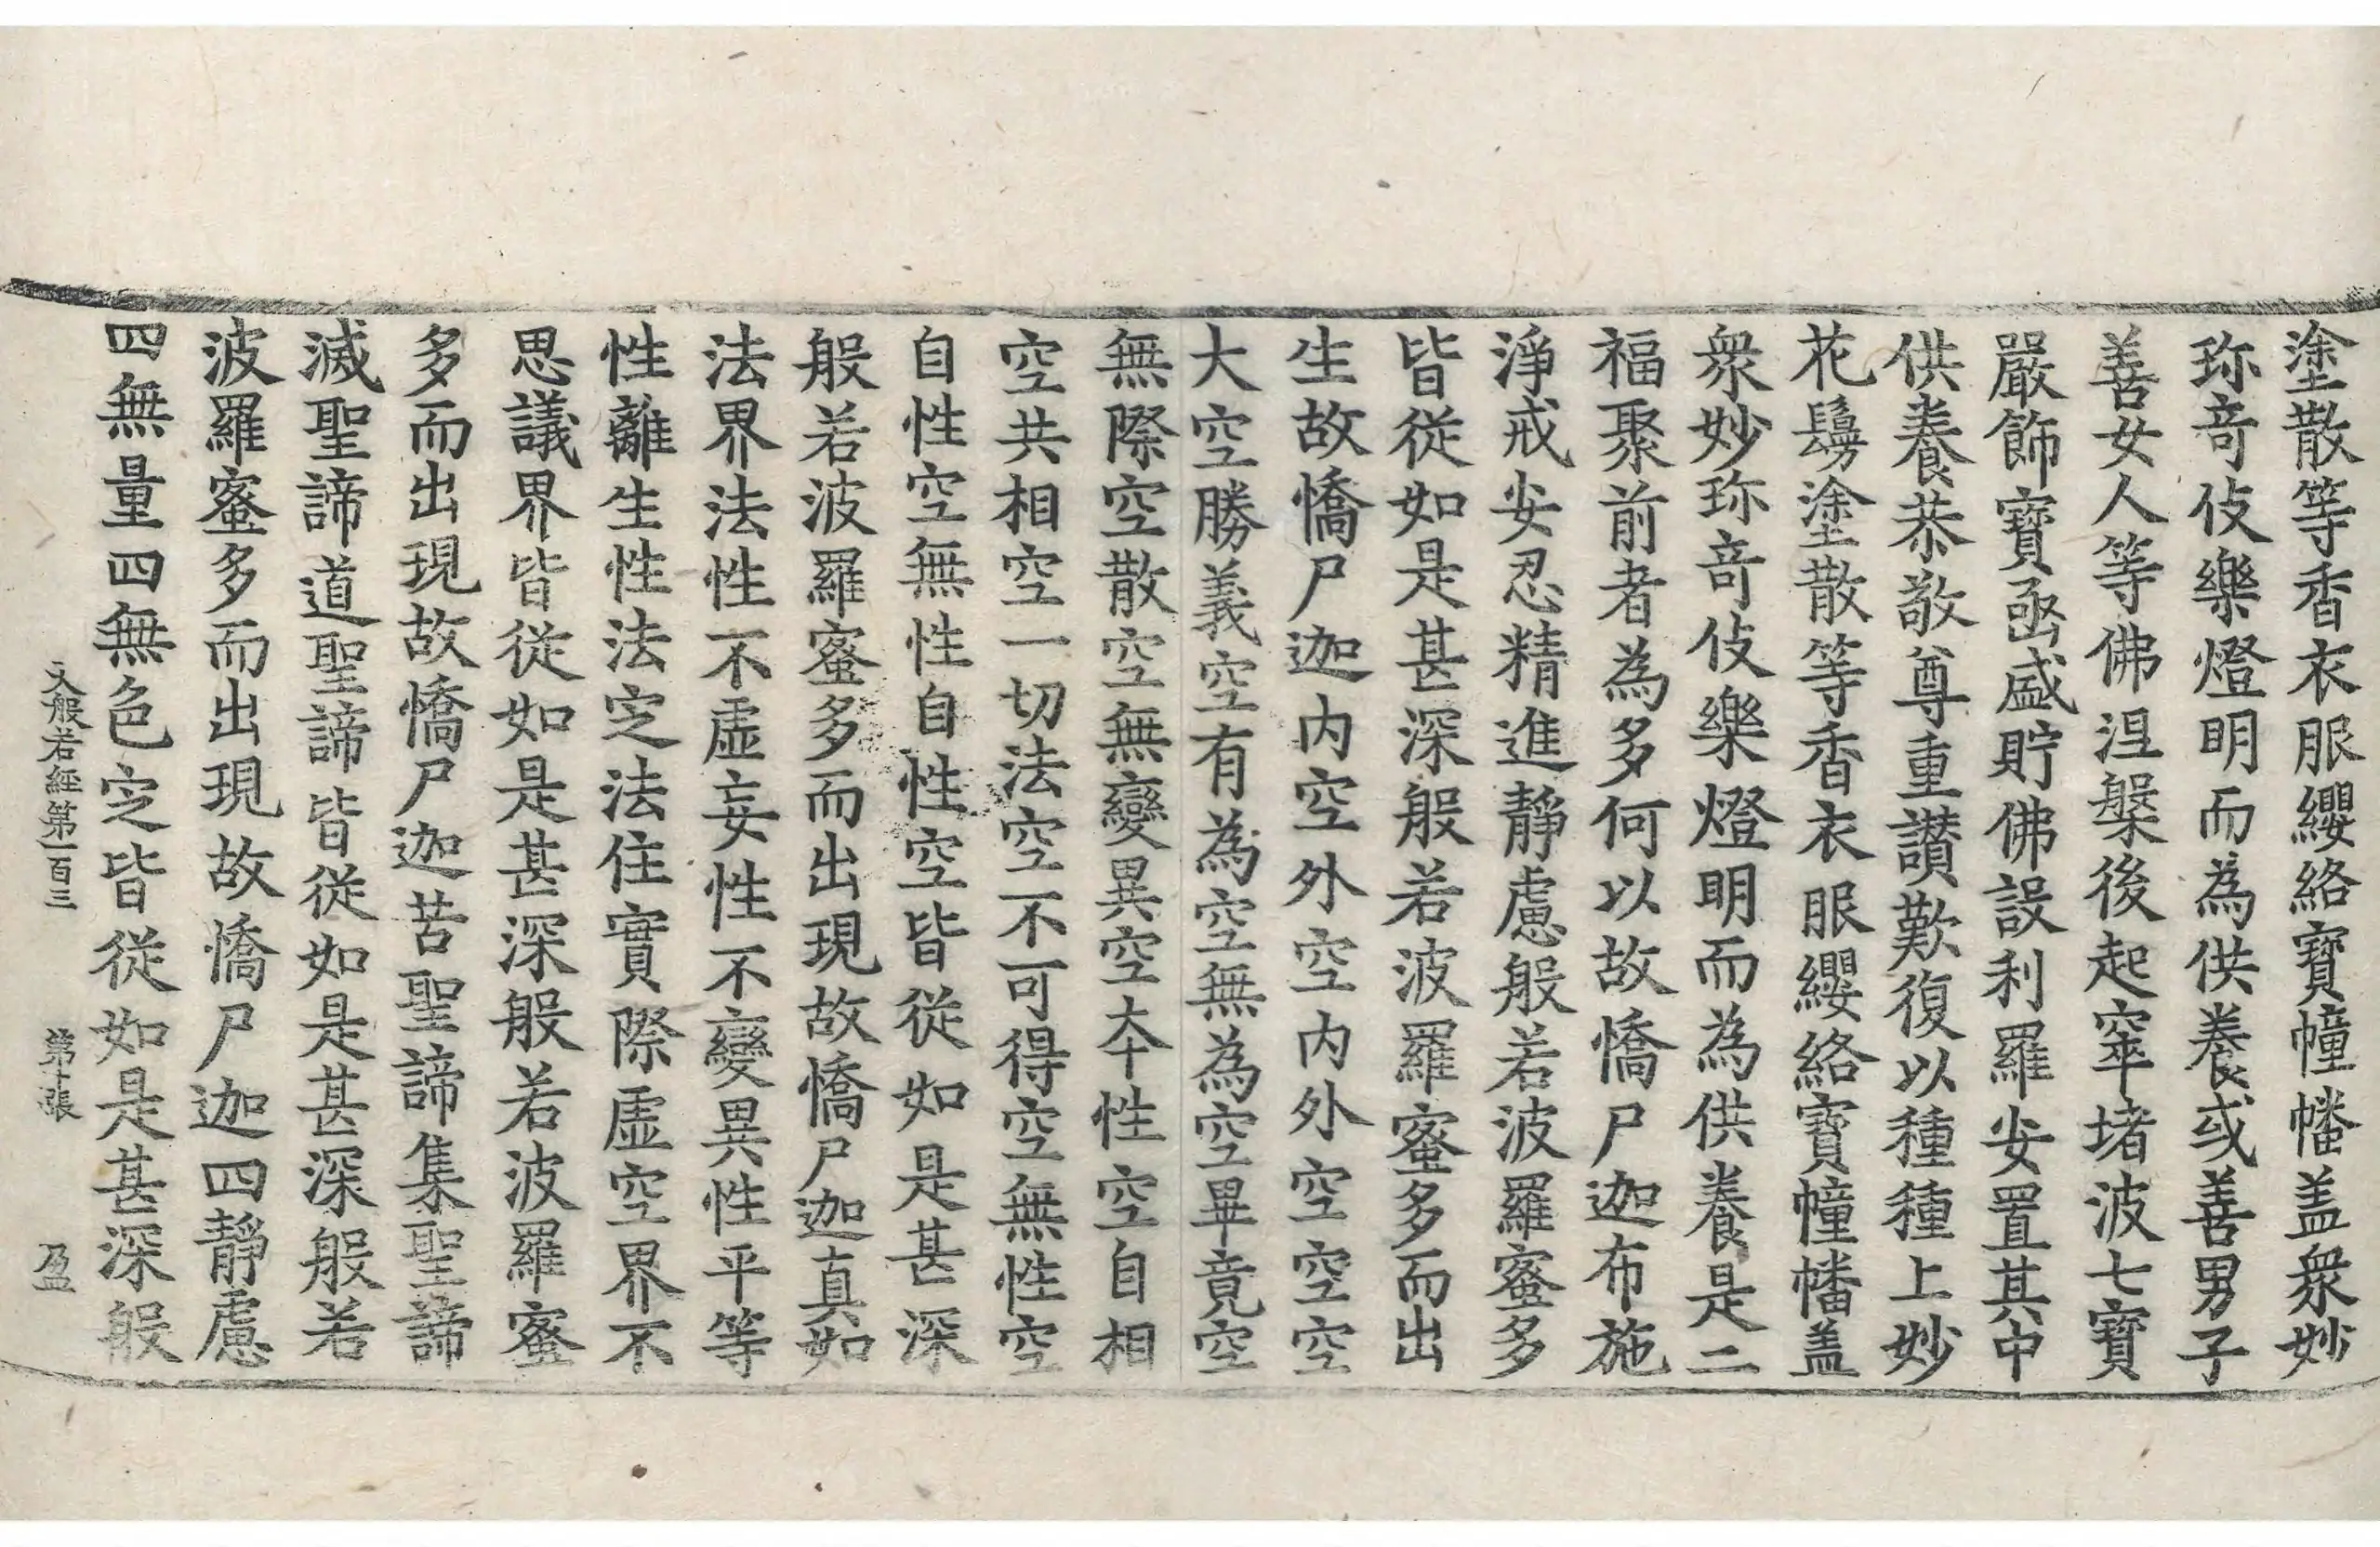 塗散等香衣服纓絡寶幢幡盖衆妙
珎奇伎樂燈明而為供養或善男子
善女人等佛涅槃後起窣堵波七寶
嚴飾寶函盛貯佛設利羅安置其中
供養恭敬尊重讃歎復以種種上妙
花鬘塗散等香衣服纓絡寶幢幡盖
衆妙珎奇伎樂燈明而為供養是二
福聚前者為多何以故憍尸迦布施
淨戒安忍精進靜慮般若波羅蜜多
皆從如是甚深般若波羅蜜多而出
生故憍尸迦内空外空内外空空空
大空勝義空有為空無為空畢竟空
無際空散空無變異空本性空自相
空共相空一切法空不可得空無性空
自性空無性自性空皆從如是甚深
般若波羅蜜多而出現故憍尸迦真如
法界法性不虛妄性不變異性平等
性離生性法定法住實際虛空界不
思議界皆從如是甚深般若波羅蜜
多而出現故憍尸迦苦聖諦集聖諦
滅聖諦道聖諦皆從如是甚深般若
波羅蜜多而出現故憍尸迦四靜慮
四無量四無色定皆從如是甚深般
大般若經第一百三 第十張 盈